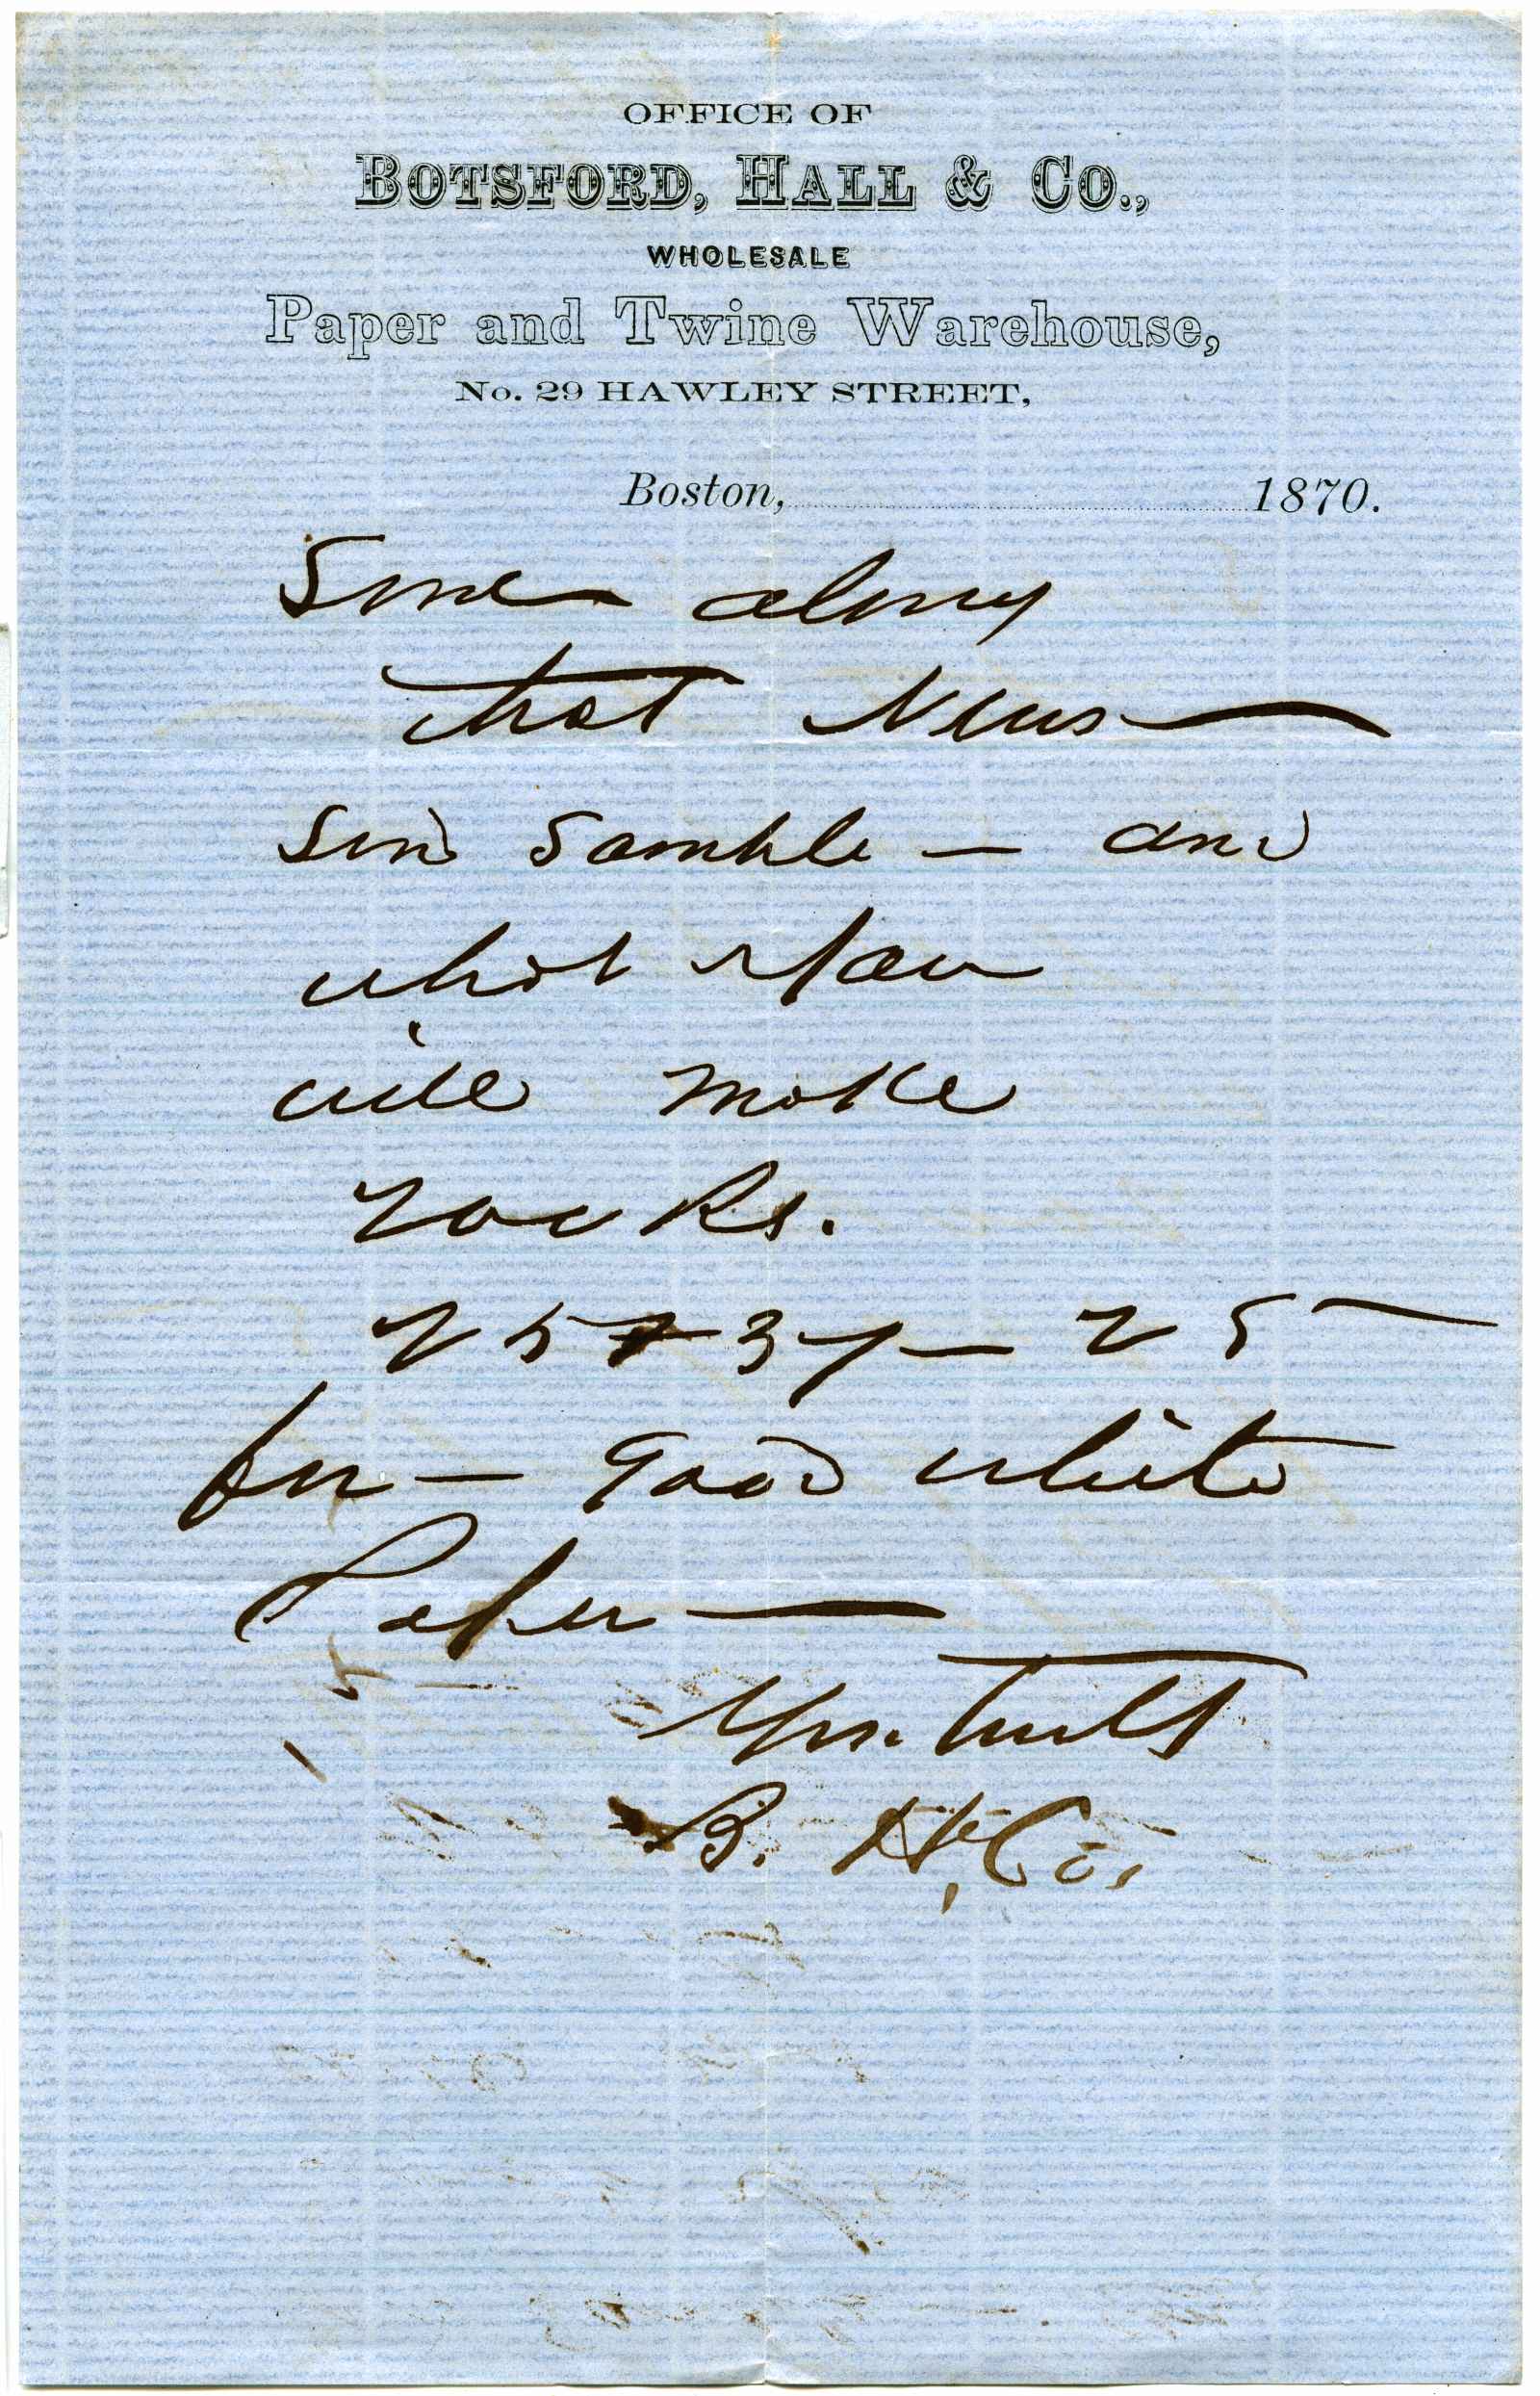 OFFICE OF
BOTSFORD, HALL & CO.,
WHOLESALE
Paper and Twine Warehouse,
No. 29 HAWLEY STREET,
Boston, 1870.
Send along
that News
Send Sample — and
what you
will make
for — good white
Paper —
Yrs. truly
B. H. & Co.